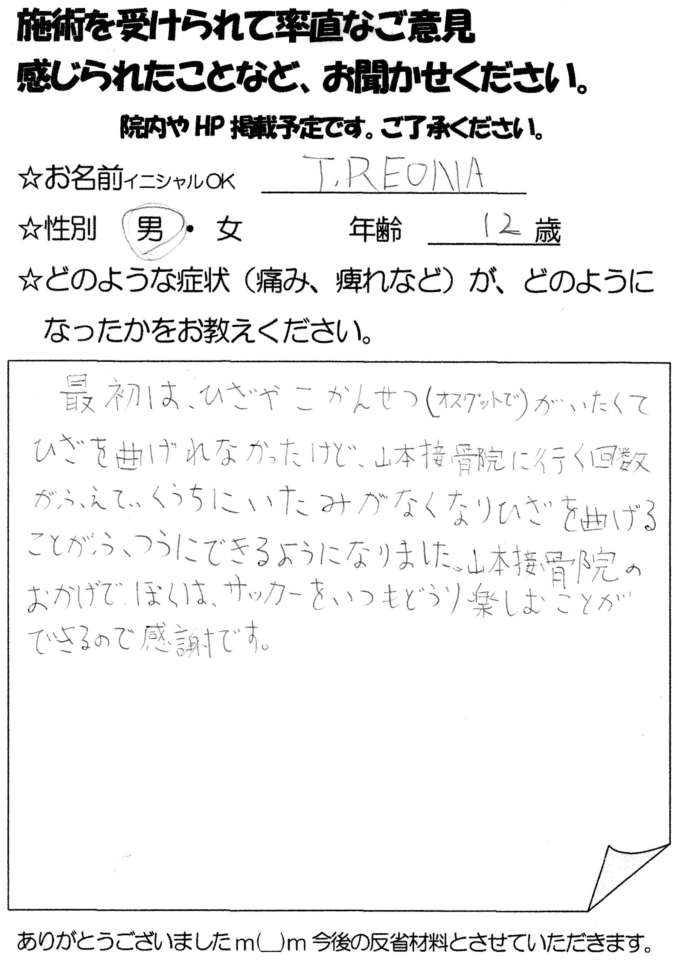 施術を受けられて率直なご意見
感じられたことなど、お聞かせください。
院内やHP掲載予定です。ご了承ください。
☆お名前イニシャルOK T.REONA
☆性別 男・女 年齢 12歳
☆どのような症状（痛み、痺れなど）が、どのように
なったかをお教えください。
最初は、ひざやこかんせつ(オスグットで)がいたくて
ひざを曲げれなかったけど、山本接骨院に行く回数
がふえていくうちにいたみがなくなりひざを曲げる
ことがふつうにできるようになりました。山本接骨院の
おかげでぼくは、サッカーをいつもどうり楽しむことが
できるので感謝です。
ありがとうございましたm(__)m今後の反省材料とさせていただきます。